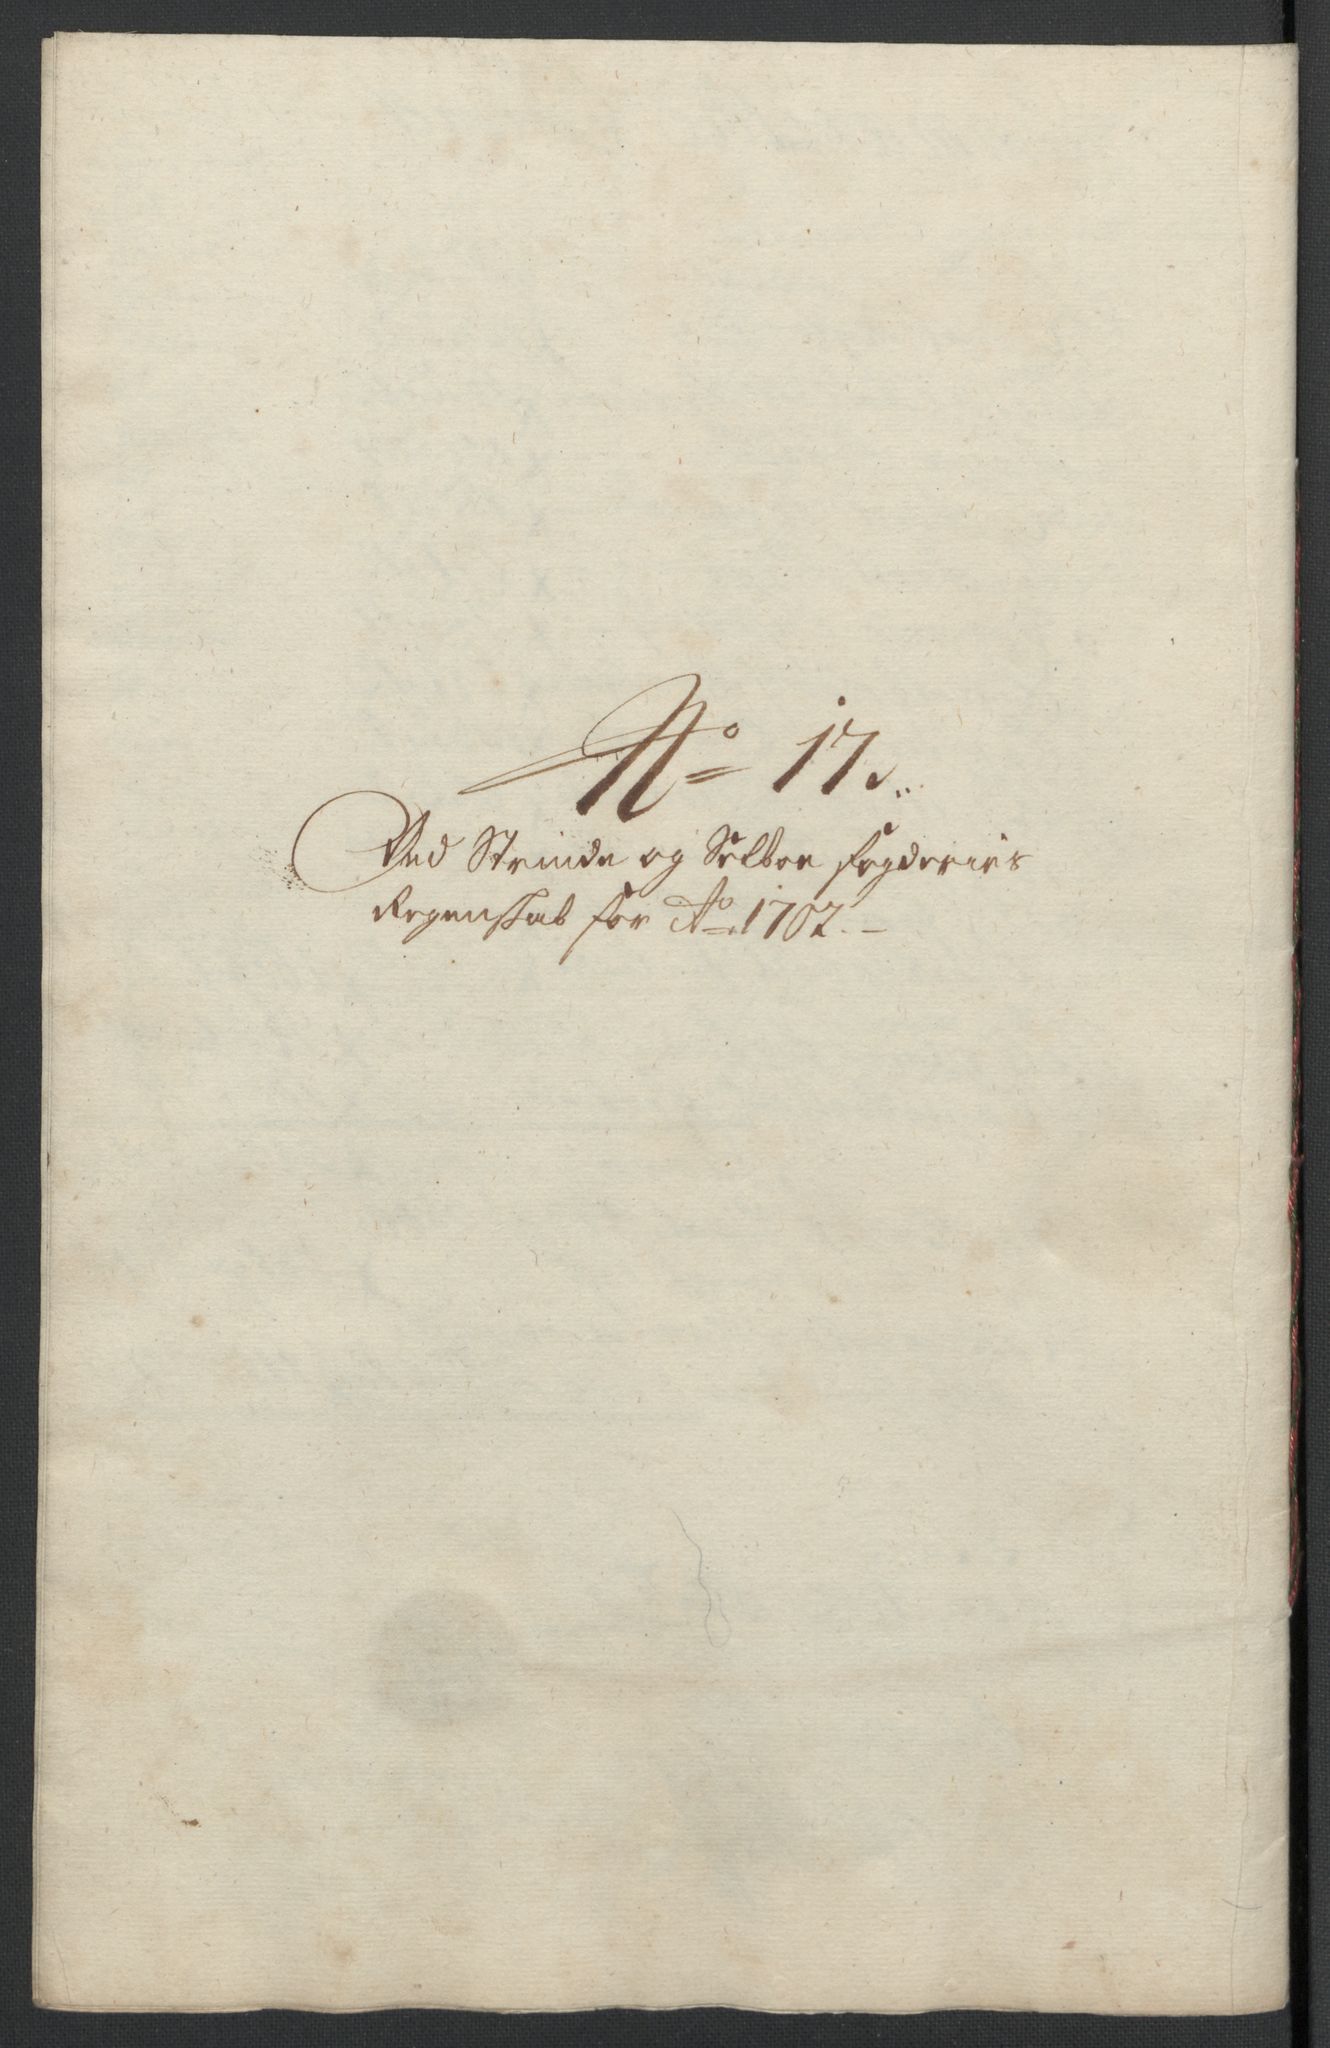 No 17.
Ved Strinde og Selboe fogderies
Regenskab for Ao 1702.